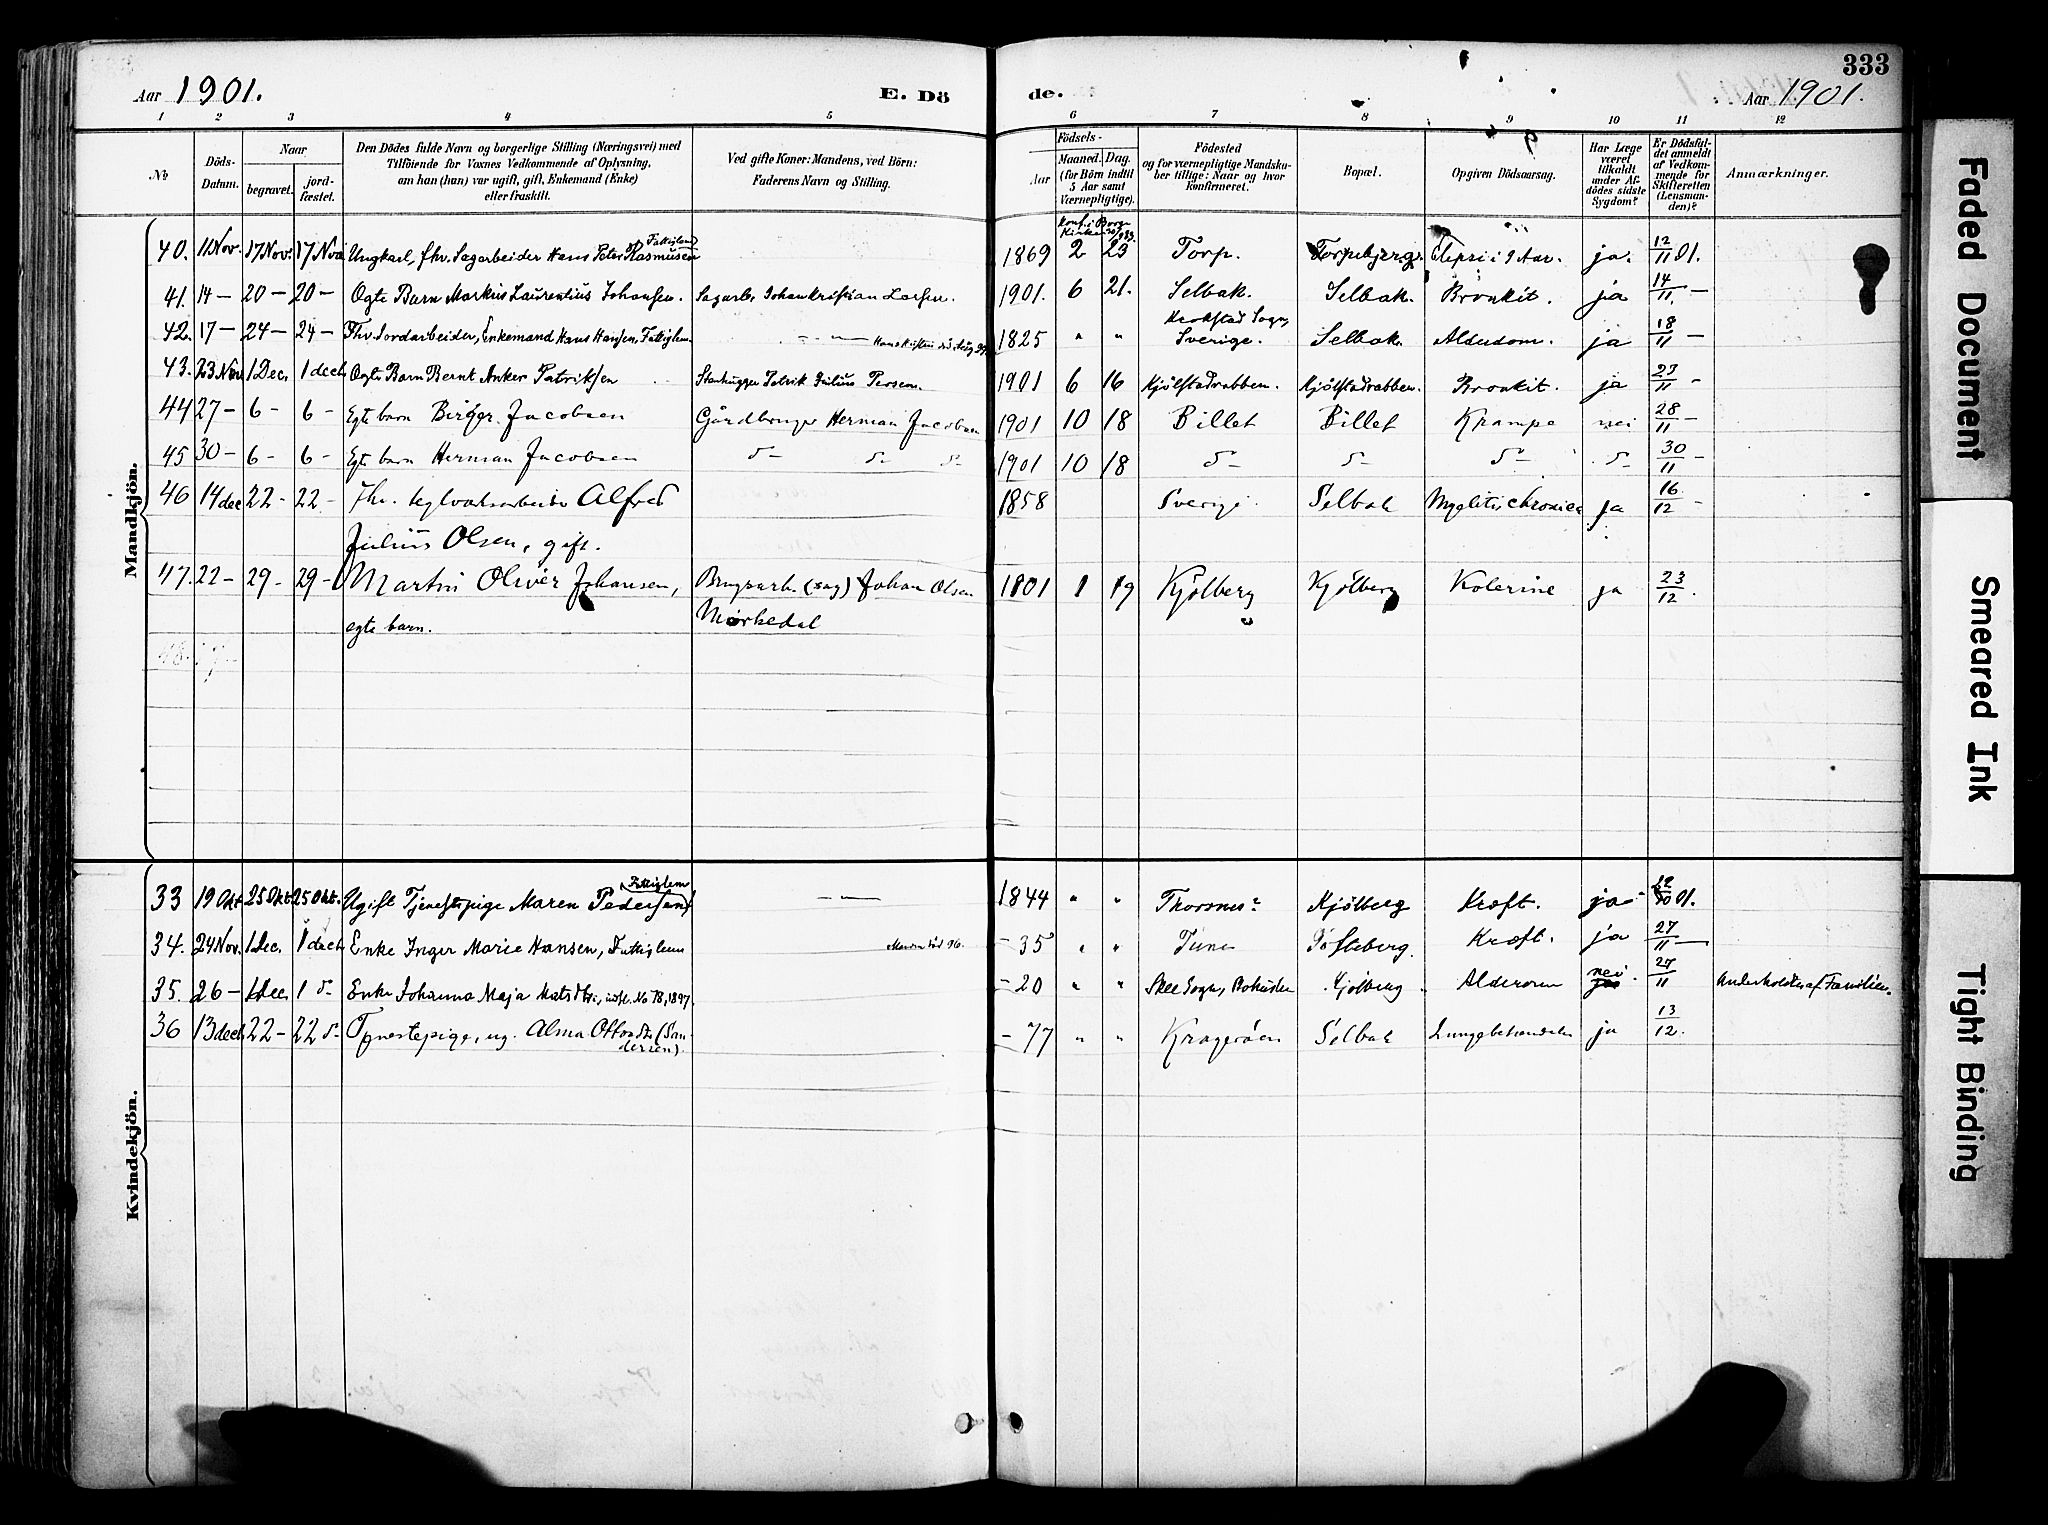 Aar 1901. E. Dö de. Aar 1901. 333
1 2 3 4 5 6 7 8 9 10 11 12
No
Döds-Datum.
Naar
begravet.
jord-fæstet.
Den Dödes fulde Navn og borgerlige Stilling (Næringsvei) med
Tilföiende for Voxnes Vedkommende af Oplysning,
om han (hun) var ugift, gift, Enkemand (Enke)
eller fraskilt.
Ved gifte Koner: Mandens, ved Börn:
Faderens Navn og Stilling.
Födsels-
Aar
Maaned. Dag.
(for Börn indtil
5 Aar samt
Værnepligtige).
Födested
og for værnepligtige Mandska-
ber tillige: Naar og hvor
konfirmeret.
Bopæl.
Opgiven Dödsaarsag.
Har Læge
været
tilkaldt
under Af-
dödes sidste
Sygdom?
Er Dödsfal-
det anmeldt
af Vedkom-
mende for
Skifteretten
(Lensman-
den)?
Anmærkninger.
Mandkjön.
Konf. i Borge
Kirke
Fattiglem
40. 11 Nov. 17 Nov. 17 Nov. Ungkarl, fhv. Sagarbeider Hans Peter Rasmusen 1869 2 23 Torp. Torpebjerg. Lepra i 9 Aar. ja. 12/11 01.
41. 14 – 20 – 20 – Ægte Barn Markus Laurentius Johansen. Sagarb. Johan Kristian Larsen. 1901. 6 21. Selbak. Selbak. Bronkit. ja 14/11 –
42. 17 – 24 – 24 – Fhv. Jordarbeider, Enkemand Hans Hansen, Fattiglem – 1825 " " Krokstad Sogn, Sverige. Selbak. Alderdom. ja 18/11 –
43. 23 Nov. 1 Dec. 1 dec. Ægte Barn Bernt Anker Patriksen Stenhugger Patrik Julius Persen. 1901 6 16 Kjölstadrabben. Kjölstadrabben. Bronkit. ja 23/11 –
44 27 – 6 – 6 – Egte barn Birger Jacobsen Gårdbruger Herman Jacobsen 1901 10 18 Billet Billet Krampe nei 28/11 –
45 30 – 6 – 6 – Egte barn Herman Jacobsen d– d– d– 1901 10 18 d– d– d– d– 30/11
46 14 dec 22 – 22 – Fhv. teglværksarbeider Alfred 1858 Sverige Selbak Myelitis chronica ja 16/12 –
Julius Olsen, gift.
47. 22 – 29 – 29 – Martin Oliver Johansen, Brugsarb. (sag) Johan Olsen 1901 1 19 Kjölberg Kjölberg Kolerine ja 23/12.
egte barn. Mörkedal
48.
Kvindekjön.
Fattiglem
33 19 Okt. 25 Okt. 25 Okt. Ugift Tjenestepige Maren Pedersen – 1844 " " Thorsnes Kjölberg Kræft. ja 01.
34. 24 Nov. 1 Dec. 1 dec. Enke Inger Marie Hansen, Fattiglem Manden död 96. – 35 " " Tune Kræft. ja 27/11 –
35. 26 – 1 Dec. 1 d– Enke Johanna Maja Matsdtr., indfl. No 78, 1897. – 20 " " Skee Sogn, Bohuslen Kjölberg Alderdom nei 27/11 Underholdes af Familien.
36 13 dec 22 – 22 d– Tjenestepige, ug. Alma Ottosdtr (San-
dersen). – 77 " " Kragerøen Selbak ja 13/12.
Faded Document
Smeared Ink
Tight Binding